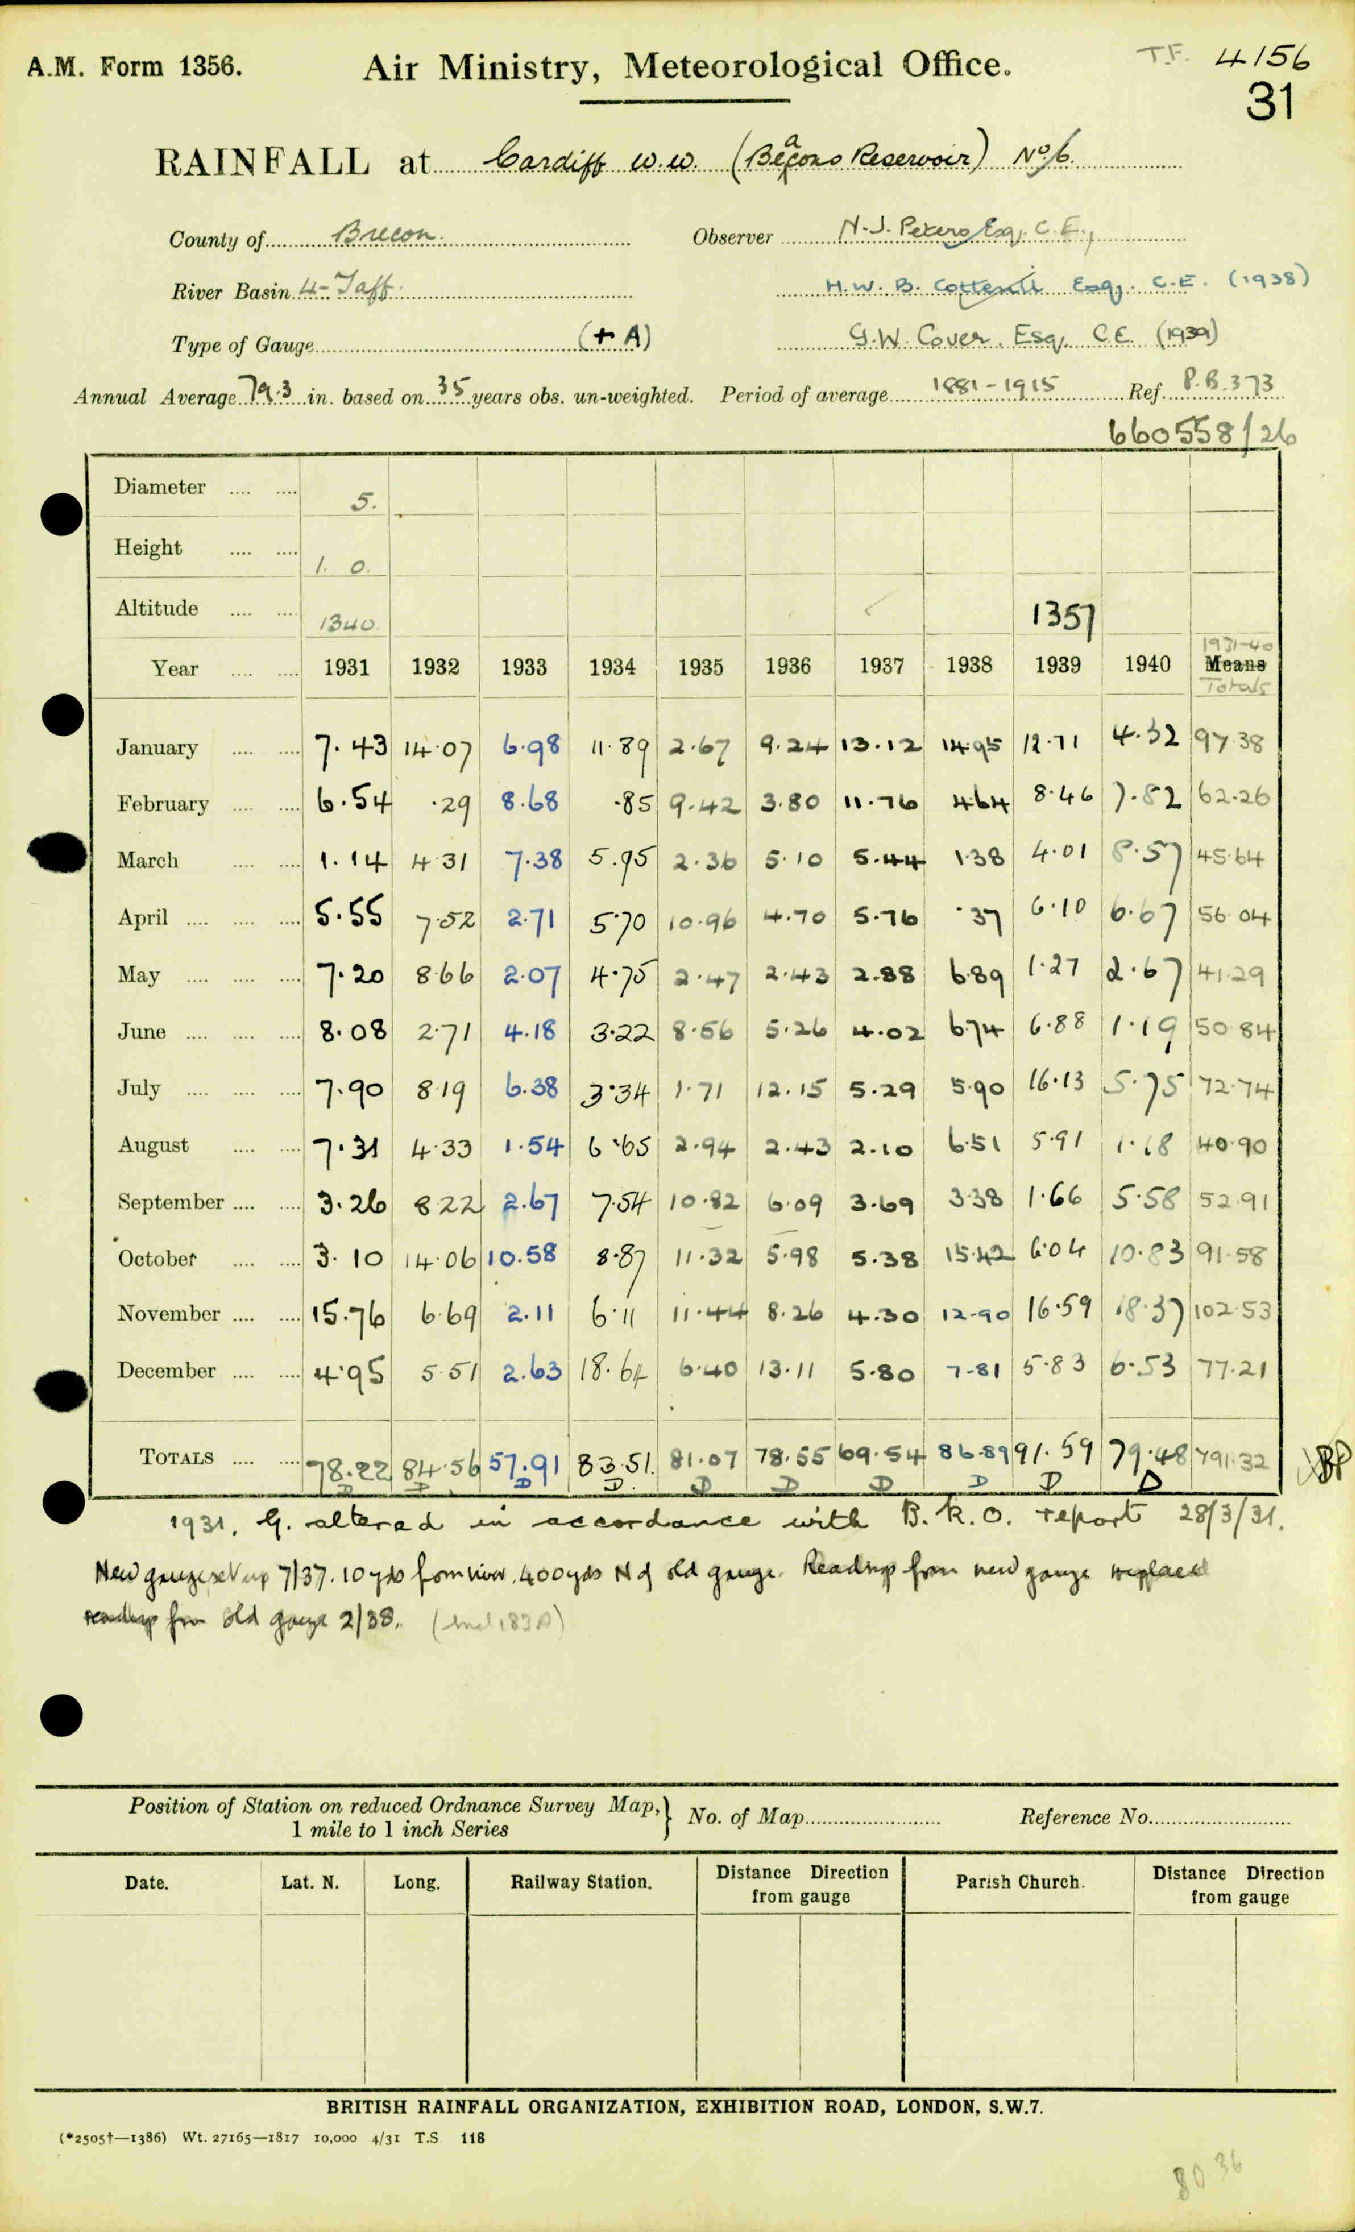 A.M. Form 1356. Air Ministry, Meteorological Office. T.F. 4156
31
RAINFALL at Cardiff W.W. (Beacons Reservoir) No. 6
County of Brecon. Observer N.J. Peters Esq. C.E.,
River Basin 4-Taff. H.W.B. Cottrill Esq. C.E. (1938)
Type of Gauge (+ A) G.W. Cover. Esq. C.E. (1939)
Annual Average 79.3 in. based on 35 years obs. un-weighted. Period of average 1881-1915 Ref. P.B. 373
660558/26
Diameter 5.
Height 1. 0.
Altitude 1340. 1357
Year 1931 1932 1933 1934 1935 1936 1937 1938 1939 1940 1931-40 Means Totals
January 7.43 14.07 6.98 11.89 2.67 9.24 13.12 14.95 12.71 4.32 97.38
February 6.54 .29 8.68 .85 9.42 3.80 11.76 4.64 8.46 7.82 62.26
March 1.14 4.31 7.38 5.95 2.36 5.10 5.44 1.38 4.01 8.57 45.64
April 5.55 7.52 2.71 5.70 10.96 4.70 5.76 .37 6.10 6.67 56.04
May 7.20 8.66 2.07 4.75 2.47 2.43 2.88 6.89 1.27 2.67 41.29
June 8.08 2.71 4.18 3.22 8.56 5.26 4.02 6.74 6.88 1.19 50.84
July 7.90 8.19 6.38 3.34 1.71 12.15 5.29 5.90 16.13 5.75 72.74
August 7.31 4.33 1.54 6.65 2.94 2.43 2.10 6.51 5.91 1.18 40.90
September 3.26 8.22 2.67 7.54 10.82 6.09 3.69 3.38 1.66 5.58 52.91
October 3.10 14.06 10.58 8.87 11.32 5.98 5.38 15.42 6.04 10.83 91.58
November 15.76 6.69 2.11 6.11 11.44 8.26 4.30 12.90 16.59 18.37 102.53
December 4.95 5.51 2.63 18.64 6.40 13.11 5.80 7.81 5.83 6.53 77.21
TOTALS 78.22 84.56 57.91 83.51. 81.07 78.55 69.54 86.89 91.59 79.48 791.32 BP
D D D D. D D D D D D
1931. G. altered in accordance with B.R.O. report 28/3/31.
New gauge set up 7/37. 10 yds from river. 400 yds N of old gauge. Readings from new gauge replaced
readings from old gauge 2/38.
Position of Station on reduced Ordnance Survey Map, 1 mile to 1 inch Series } No. of Map Reference No.
Date. Lat. N. Long. Railway Station. Distance Direction from gauge Parish Church. Distance Direction from gauge
BRITISH RAINFALL ORGANIZATION, EXHIBITION ROAD, LONDON, S.W.7.
(*2505†—1386) Wt. 27165—1817 10,000 4/31 T.S. 118
80.36